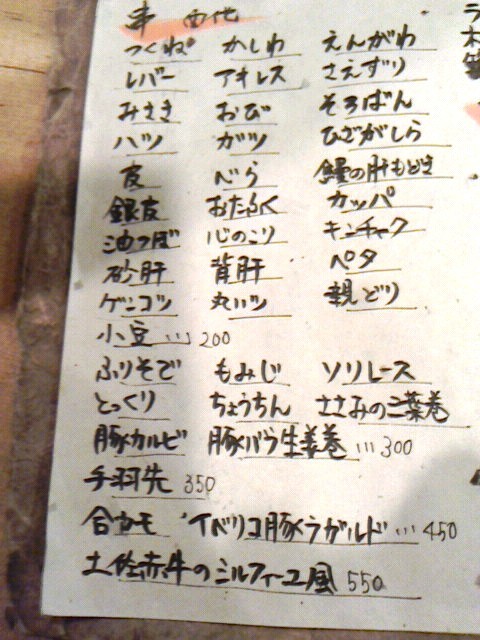 串
つくね かしわ えんがわ
レバー アキレス さえずり
みさき おび そろばん
ハツ ガツ ひざがしら
皮 べら 鰻の肝もどき
銀皮 おたふく カッパ
油つぼ 心のこり キンチャク
砂肝 背肝 ペタ
ゲンコツ 丸ハツ 親どり
小豆…200
ふりそで もみじ ソリレース
とっくり ちょうちん ささみの二葉巻
豚カルビ 豚バラ生姜巻…300
手羽先 350
合カモ イベリコ豚ラガルド…450
土佐赤牛のミルフィーユ風 550